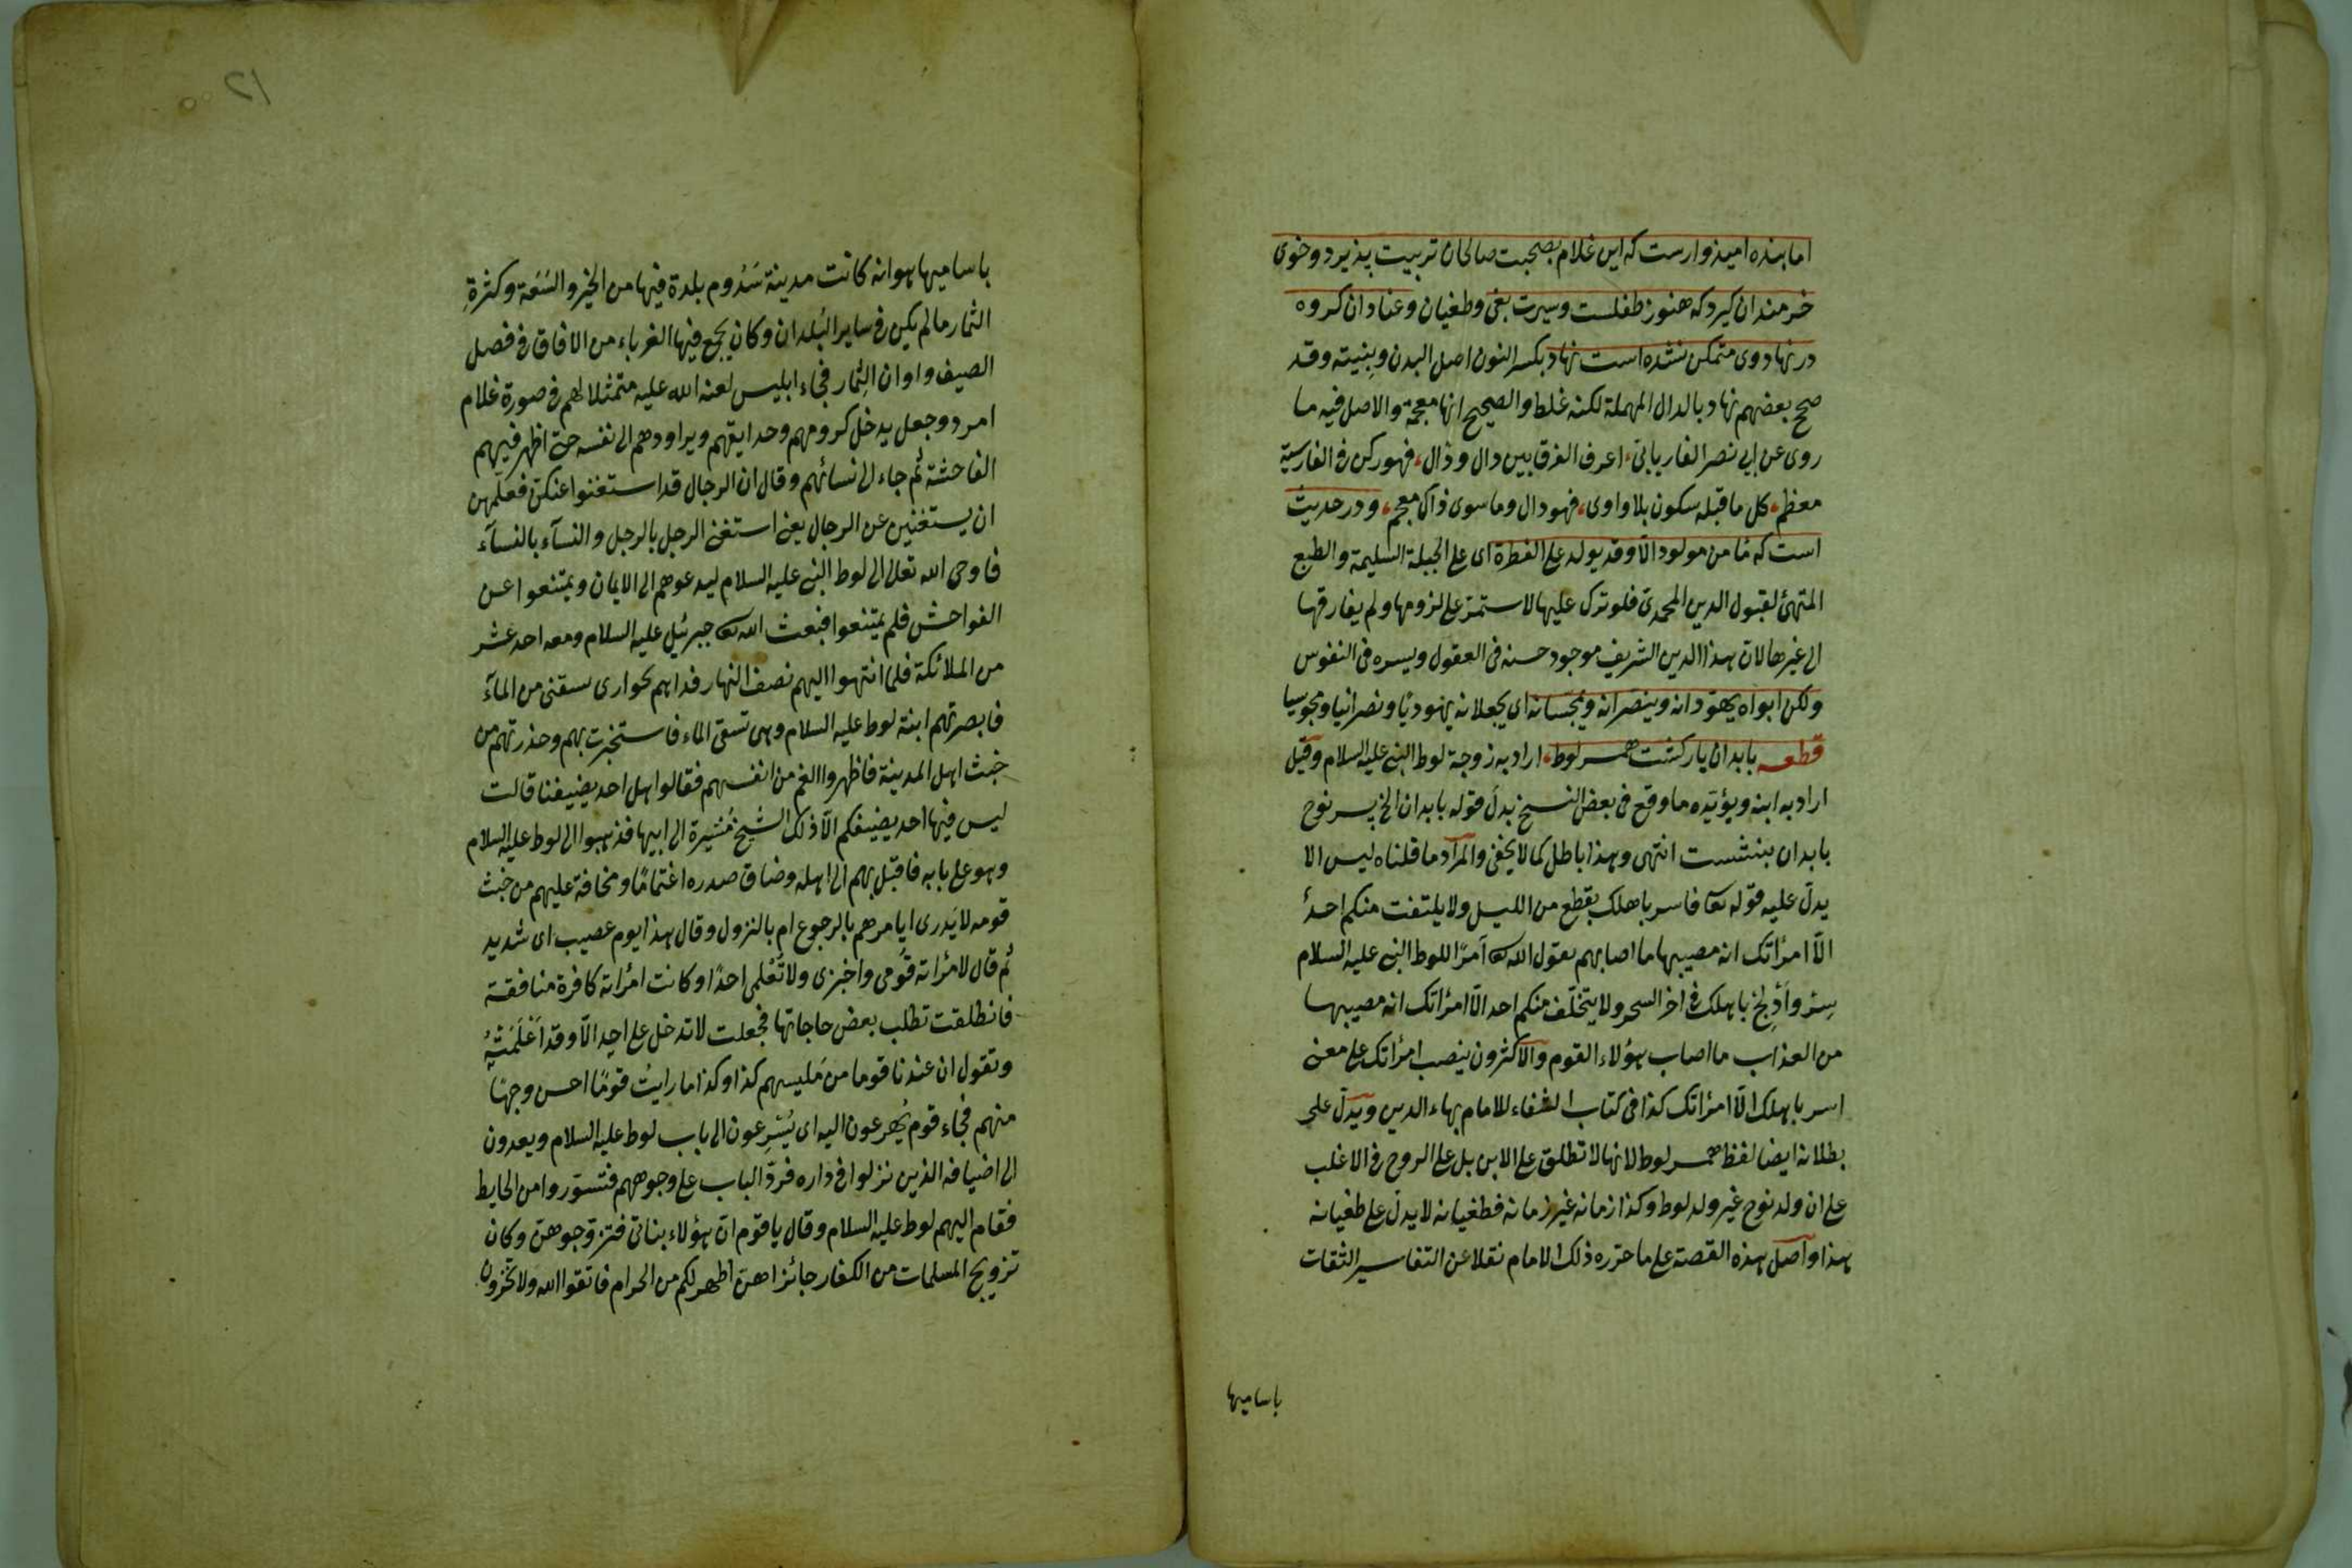 اما بنده اميذوارست كه اين غلام بصحبت صالحان تربيت پذيرد وخوى
خرمندان كيرد كه هنوز طفلست وسيرت بغى وطغيان وعنادان كروه
در نهاد وى متمكن نشده است نهاد بكسر النون اصل البدن وبِنيته وقد
صحح بعضهم نهاد بالدال المهملة لكنه غلط والصحيح انها معجمة والاصل فيه ما
روى عن ابى نصر الفاريابى، اعرف الفرق بين دال وذال، فهو ركن فى الفارسية
معظم، كل ما قبله سكون بلا واوى، فهو دال وما سوى ذاك معجم، ودر حديث
است كه مَا من مولود الّا وقد يولد على الفطرة اى على الجبلة السليمة والطبع
المتهئ لقبول الدين المحمدىّ فلو ترك عليها لاستمرّ على لزومها ولم يفارقها
الى غيرها لان هذا الدين الشريف موجود حسنه فى العقول ويسره فى النفوس
ولكن ابواه يهوّدانه وينصّرانه ويمجّسانه اى يجعلانه يهوديًّا ونصرانيا ومجوسيا
قطعه بابدان يار كشت همسر لوط، اراد به زوجة لوط النبى عليه السلام وقيل
اراد به ابنه ويؤيّده ما وقع فى بعض النسخ بدلَ قوله بابدان الخ پسر نوح
بابدان بنشست انتهى وهذا باطل كما لا يخفى والمراد ما قلناه ليس الا
يدلّ عليه قوله تعا فاسر باهلك بقطع من الليل ولا يلتفت منكم احدٌ
الّا امرأتك انه مصيبها ما اصابهم يقول الله تعا آمرًا للوط النبى عليه السلام
سِرْ وأدْلِجْ باهلك فى اخر السحر ولا يتخلّف منكم احد الّا امرأتك انه مصيبها
من العذاب ما اصاب هؤلاء القوم والاكثرون بنصب امرأتك على معنى
اسر باهلك الّا امرأتك كذا فى كتاب الشفاء للامام بهاء الدين ويدلّ على
بطلانه ايضا لفظ همسر لوط لانها لا تطلق على الابن بل على الزوج فى الاغلب
على ان ولد نوح غير ولد لوط وكذا زمانه غير زمانه فطغيانه لا يدلّ على طغيانه
هذا واصل هذه القصة على ما حرّره ذلك الامام نقلا عن التفاسير الثقات
باساميها
١٢
باساميها هو انه كانت مدينة سَدُوم بلدة فيها من الخير والسَّعَة وكثرةِ
الثمار ما لم يكن فى ساير البُلدان وكان يجمع فيها الغرباء من الافاق فى فصل
الصيف واوان الثِمار فجاء ابليس لعنه الله عليه متمثلا لهم فى صورة غلام
امرد وجعل يدخل كرومهم وحدايقهم ويراودهم الى نفسه حتى اظهر فيهم
الفاحشة ثم جاء الى نسائهم وقال ان الرجال قد استغنوا عنكنّ فعلّمهن
ان يستغنين عن الرجال يعنى استغنى الرجل بالرجل والنسآء بالنسآء
فاوحى الله تعالى الى لوط النبى عليه السلام ليدعوهم الى الايمان ويمتنعوا عن
الفواحش فلم يمتنعوا فبعث الله تعا جبرئيل عليه السلام ومعه احد عشر
من الملائكة فلما انتهوا اليهم نصف النهار فداهم بحوارى سقنى من المآء
فابصرتهم ابنة لوط عليه السلام وهى تسقى الماء فاستخبرت بهم وحذرتهم من
خبث اهل المدينة فاظهروا الغم من انفسهم فقالوا هل احد يضيفنا قالت
ليس فيها احد يضيفكم الّا ذلك الشيخ مُشيرة الى ابيها فذهبوا الى لوط عليه السلام
وهو على بابه فاقبل بهم الى اهله وضاق صدره اغتمامًا ومخافة عليهم من خبث
قومه لا يَدرى ايامرهم بالرجوع ام بالنزول وقال هذا يوم عصيب اى شديد
ثم قال لامرأته قُومى واخبزى ولا تُعْلِمى احدًا وكانت امرأته كافرة منافقة
فانطلقت تطلب بعض حاجاتها فجعلت لا تدخل على احد الّا وقد اَعْلَمَتْهُ
وتقول ان عندنا قوما من مَلبسهم كذا وكذا ما رايتُ قومًا احسن وجهًا
منهم فجاء قوم يُهرعون اليه اى يُسْرِعون الى باب لوط عليه السلام ويعدون
الى اضيافه الذين نزلوا فى داره فردّ الباب على وجوههم فتسوّروا من الحايط
فقام اليهم لوط عليه السلام وقال يا قوم انّ هؤلاء بناتى فتزوّجوهنّ وكان
تزويج المسلمات من الكفار جائزا هنّ اطهر لكم من الحرام فاتقوا الله ولا تخزون